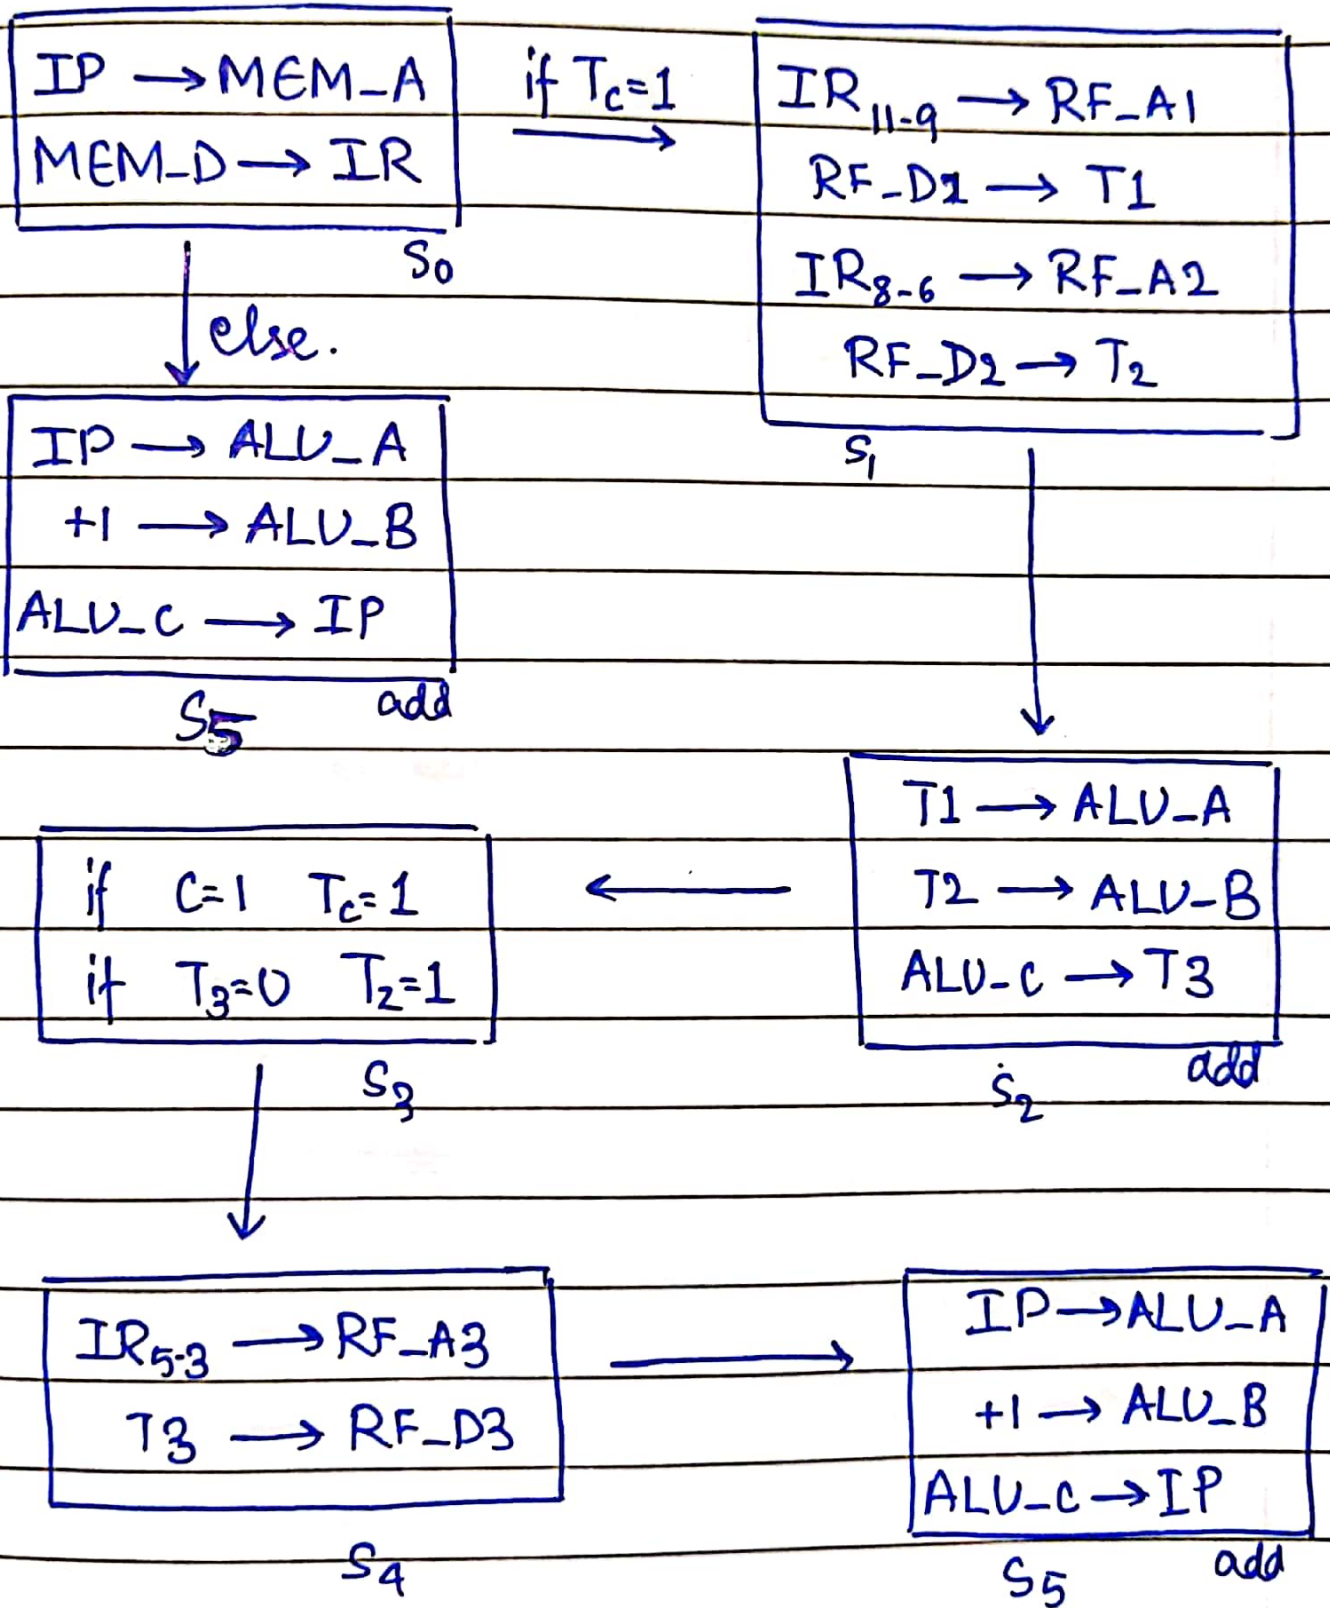 IP → MEM_A
MEM_D → IR
S0
if Tc=1
IR11-9 → RF_A1
RF_D1 → T1
IR8-6 → RF_A2
RF_D2 → T2
S1
else.
IP → ALU_A
+1 → ALU_B
ALU_C → IP
S5 add
T1 → ALU_A
T2 → ALU_B
ALU_C → T3
S2 add
if C=1 Tc=1
if T3=0 Tz=1
S3
IR5-3 → RF_A3
T3 → RF_D3
S4
IP → ALU_A
+1 → ALU_B
ALU_C → IP
S5 add